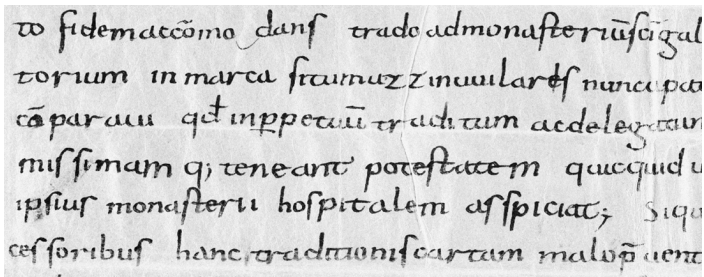 to fidem accōmodans trado ad monasteriū sci gal
torium in marca situm uzzinuuilare nuncupat
cōparaui qđ inppetuū traditum ac delegatum
missimamq; teneant potestatem quicquid u
ipsius monasterii hospitalem asspiciat; Siqu
cessoribus hanc traditionis cartam malo p uent